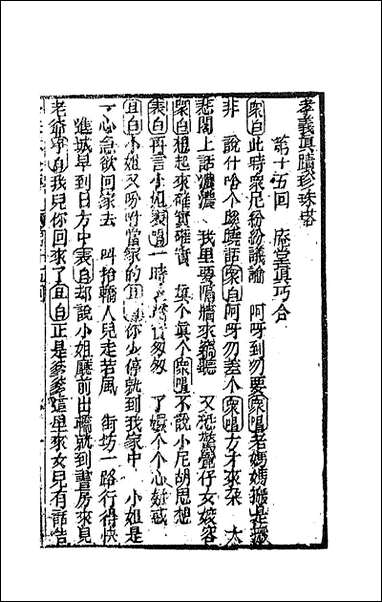 孝義真蹟珍珠塔
第十五回 庵堂真巧合
衆白此時衆尼紛紛議論 阿呀到勿要衆唱老媽媽搬是挑
非 說什哈個 話衆白阿呀勿差个衆唱方才來朶 太
悲閣上話濃濃 我里要隔牆來竊聽 又恐驚覺仔女嬡容
衆白想起來確實確實 真个真个衆唱不說小尼胡思想
表白再言小姐表唱一時 匆匆 了 个心好惑
旦白小姐又吩咐當家的旦 你少停就到我家中 小姐是
一心急欲回家去 叫抬轎人兒走若風 街坊一路行得快
進城早到日方中表白却說小姐廳前出轎就到書房來見
老爺 白我兒你回來了旦白正是爹爹這里來女兒有話告